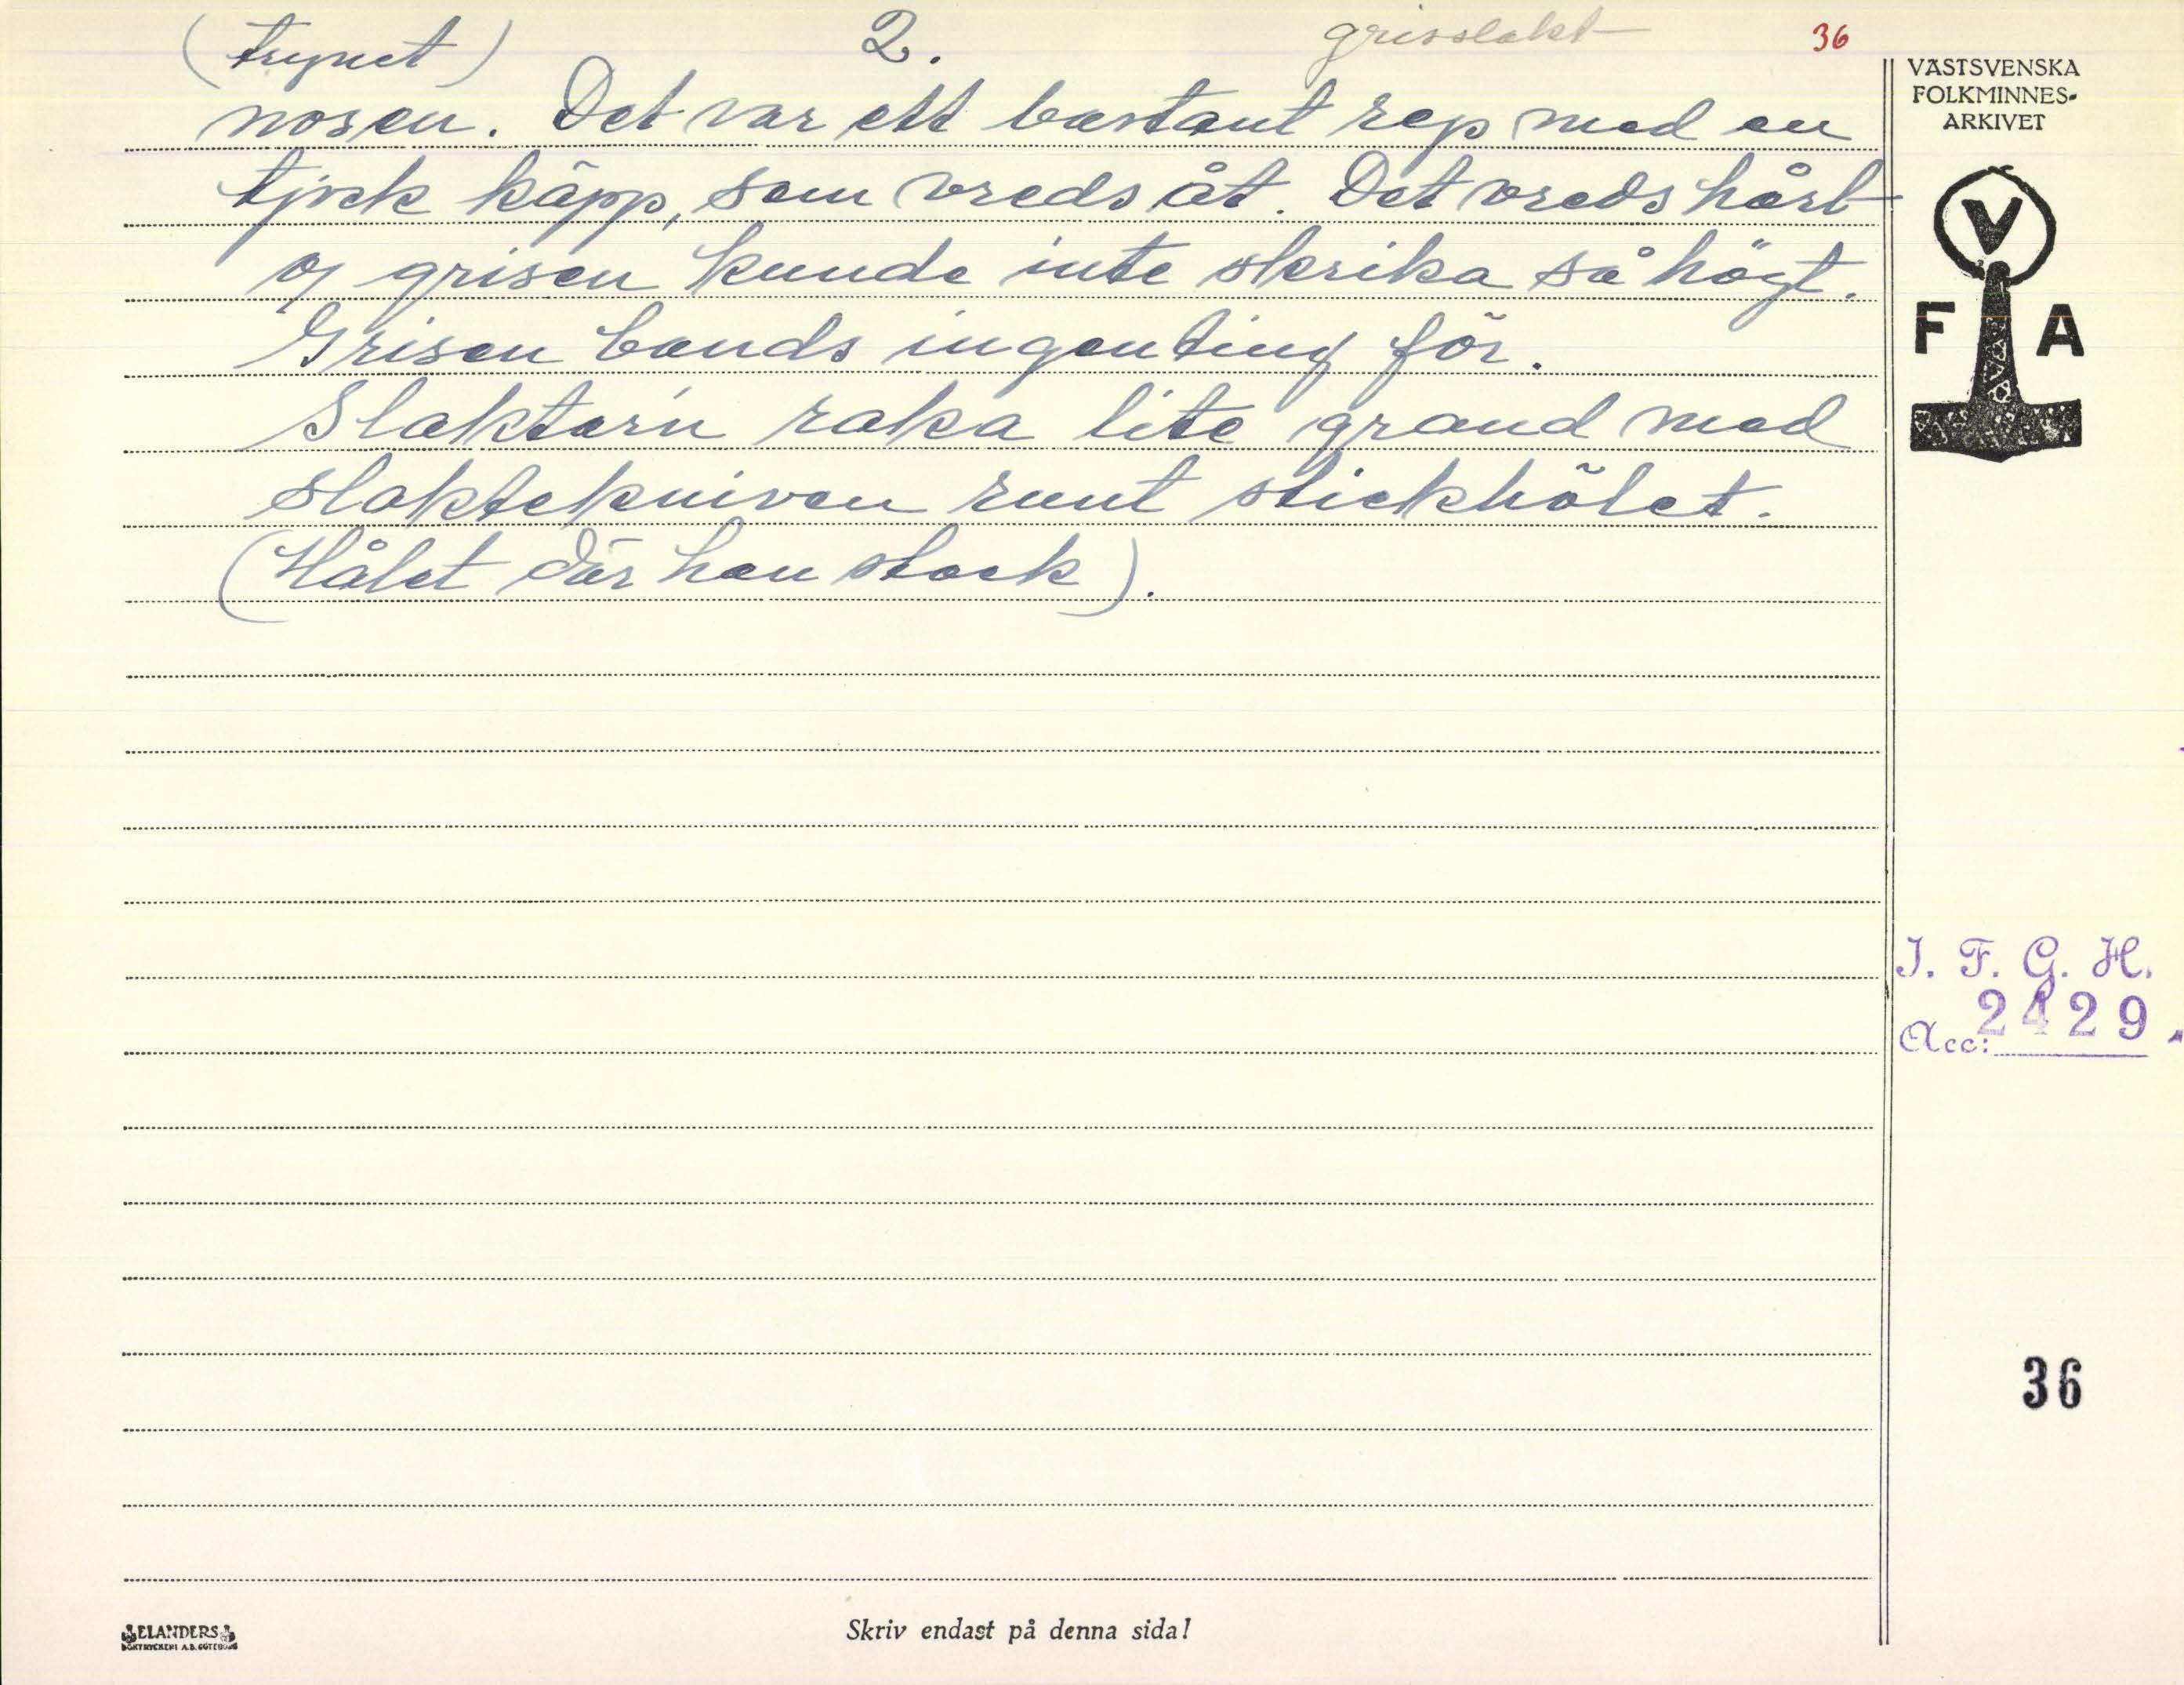 (trynet) 2. grisslakt 36
nosen. Det var ett bastant rep med en
tjock käpp, som vreds åt. Det vreds hårt
og grisen kunde inte skrika så högt.
Grisen bands ingenting för.
Slaktarn raka lite grand med
slaktekniven runt stickhôlet.
(Hålet där han stack).
VÄSTSVENSKA
FOLKMINNES-
ARKIVET
V
F A
I. F. G. H.
Acc: 2429.
36
ELANDERS
BOKTRYCKERI A.B. GÖTEBORG
Skriv endast på denna sida!